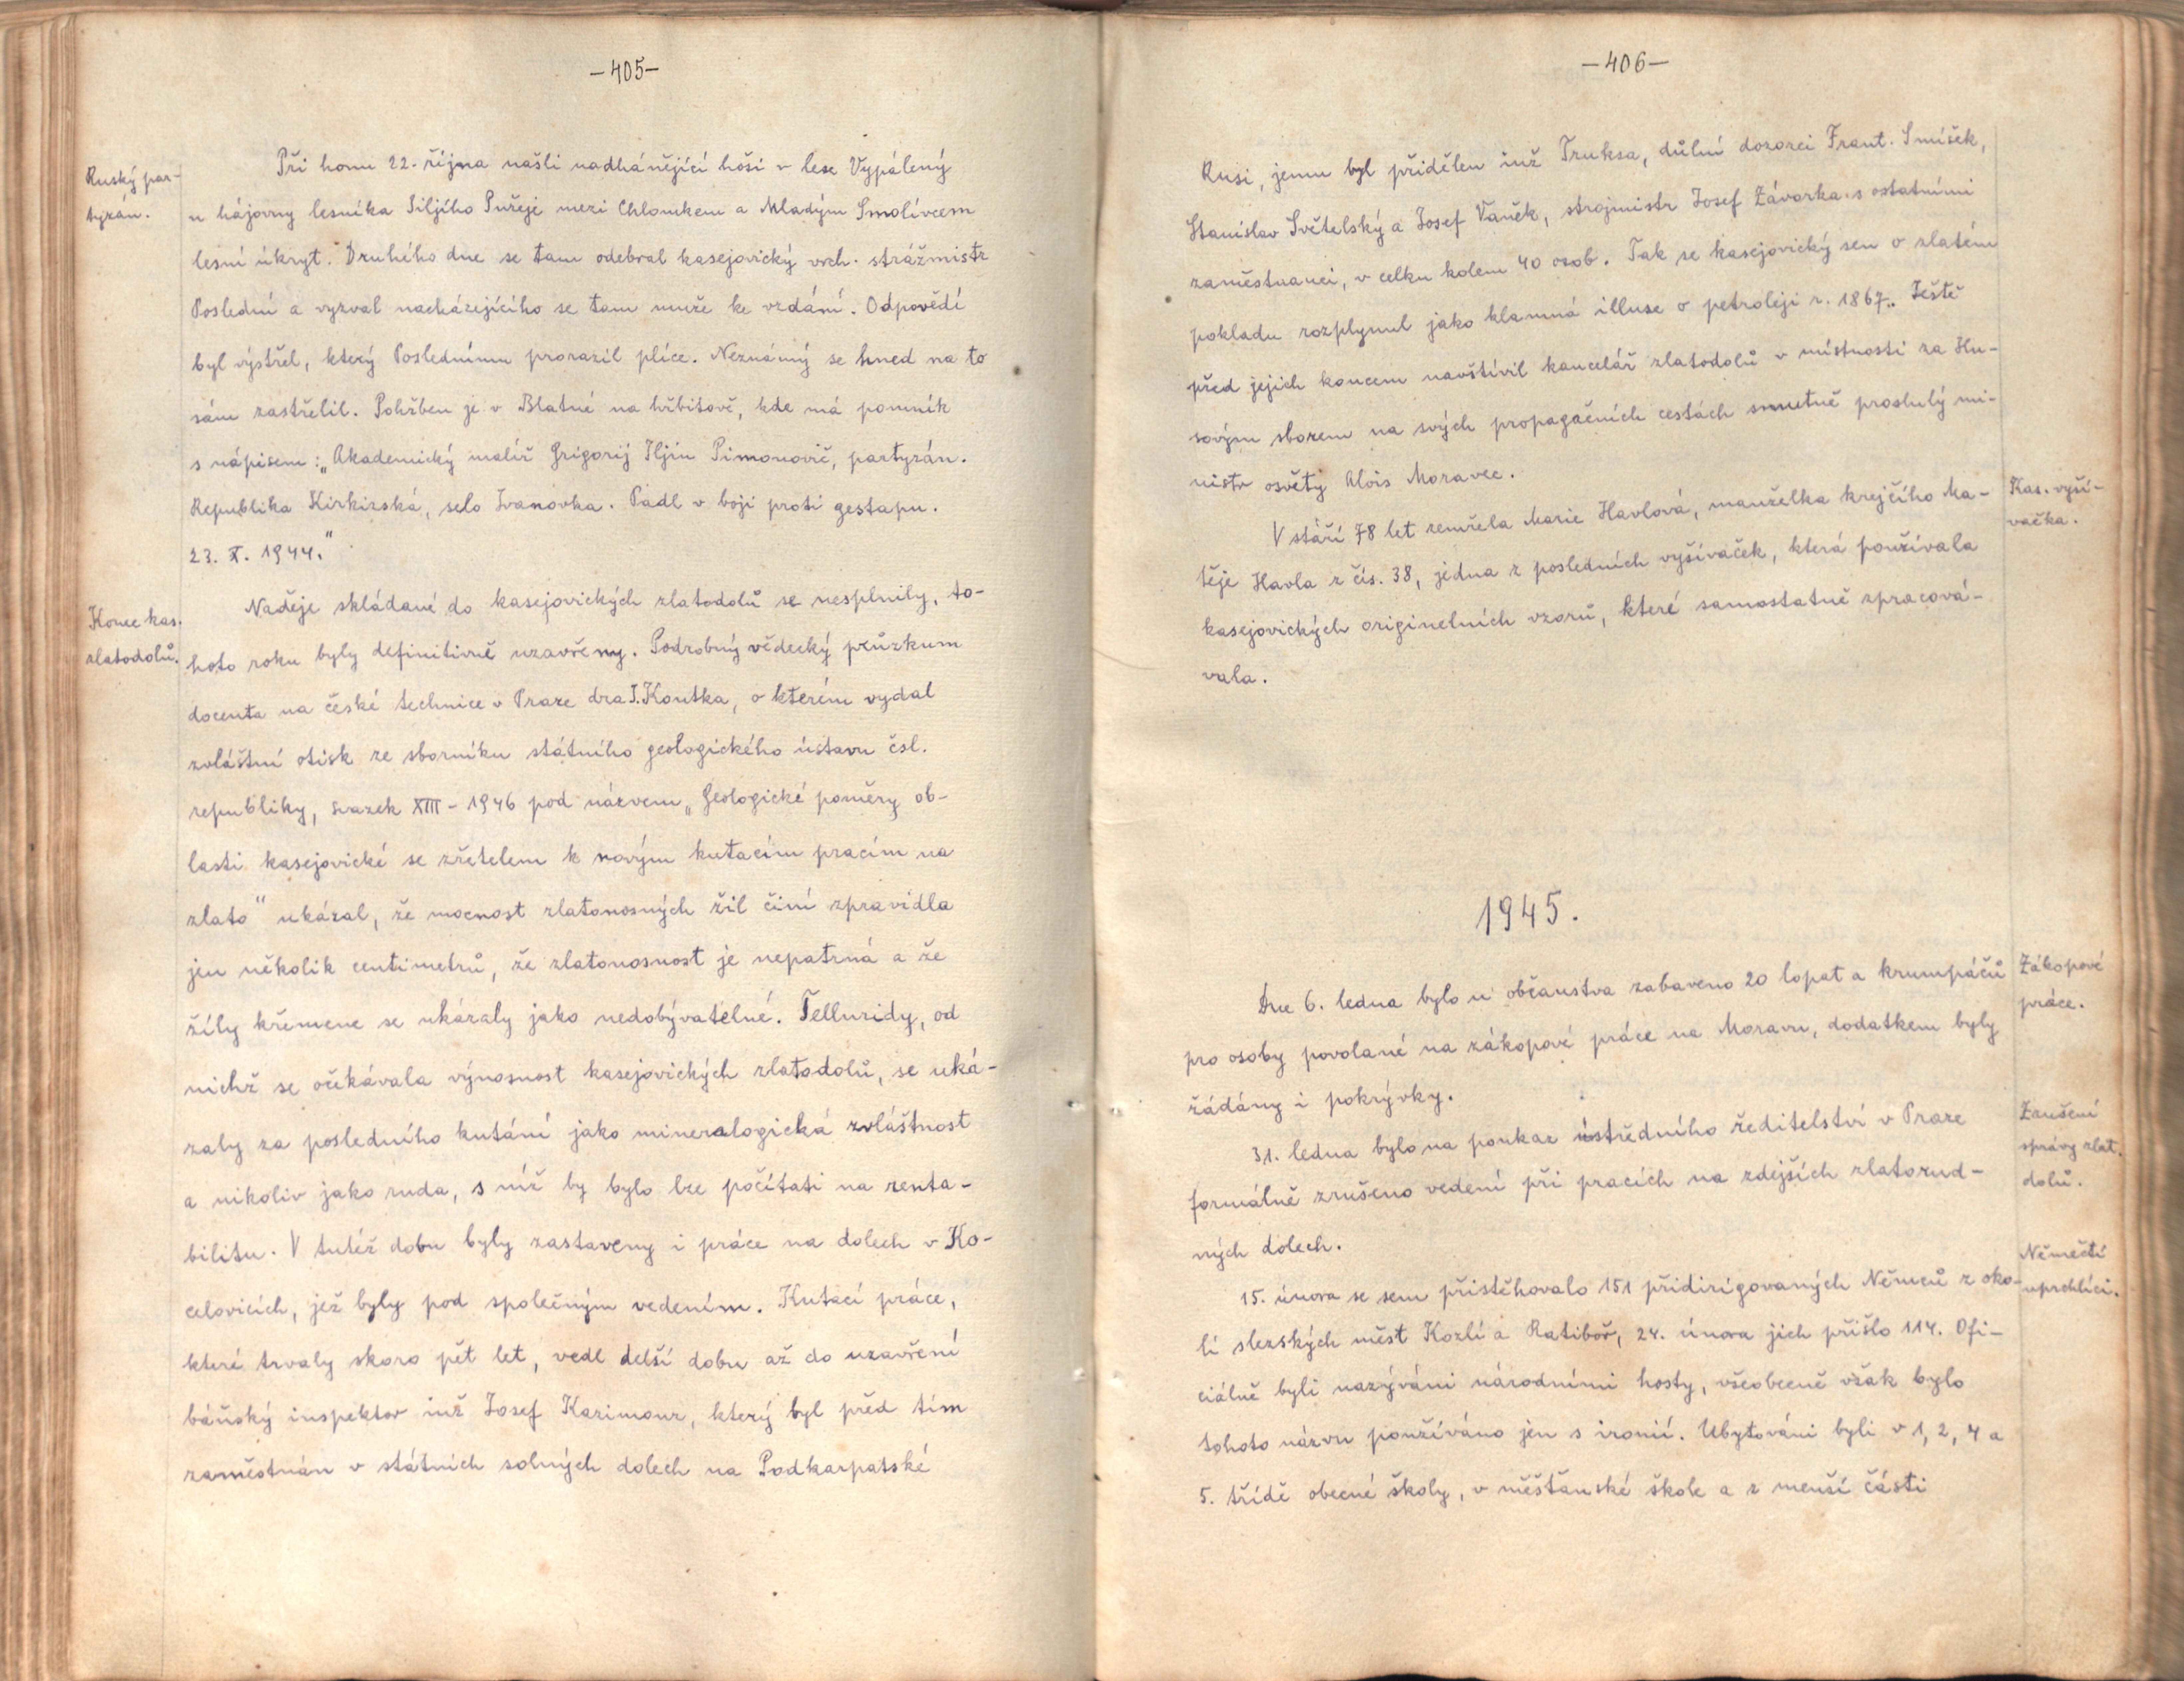 -405-
Ruský par-
tyzán.
Při honu 22. října našli nadhánějící hoši v lese Vypálený
u hájovny lesníka Jiljího Pureje mezi Chlumkem a Mladým Smolivcem
lesní úkryt. Druhého dne se tam odebral kasejovický vrch. strážmistr
Poslední a vyzval nacházejícího se tam muže ke vzdání. Odpovědí
byl výstřel, který Poslednímu prorazil plíce. Neznámý se hned na to
sám zastřelil. Pohřben je v Blatné na hřbitově, kde má pomník
s nápisem: „Akademický malíř Grigorij Iljin Pimonovič, partyzán.
Republika Kirkizská, selo Ivanovka. Padl v boji proti gestapu.
23. X. 1944."
Konec kas.
zlatodolů.
Naděje skládané do kasejovických zlatodolů se nesplnily, to-
hoto roku byly definitivně uzavřeny. Podrobný vědecký průzkum
docenta na české technice v Praze dra J. Koutka, o kterém vydal
zvláštní otisk ze sborníku státního geologického ústavu čsl.
republiky, svazek XIII - 1946 pod názvem „Geologické poměry ob-
lasti kasejovické se zřetelem k novým kutacím pracím na
zlato" ukázal, že mocnost zlatonosných žil činí zpravidla
jen několik centimetrů, že zlatonosnost je nepatrná a že
žíly křemene se ukázaly jako nedobývatelné. Telluridy, od
nichž se očekávala výnosnost kasejovických zlatodolů, se uká-
zaly za posledního kutání jako mineralogická zvláštnost
a nikoliv jako ruda, s níž by bylo lze počítati na renta-
bilitu. V tutéž dobu byly zastaveny i práce na dolech v Ko-
celovicích, jež byly pod společným vedením. Kutací práce,
které trvaly skoro pět let, vedl delší dobu až do uzavření
báňský inspektor inž Josef Kazimour, který byl před tím
zaměstnán v státních solných dolech na Podkarpatské
-406-
Rusi, jemu byl přidělen inž Truksa, důlní dozorci Frant. Smíšek,
Stanislav Světelský a Josef Vaněk, strojmistr Josef Závorka s ostatními
zaměstnanci, v celku kolem 40 osob. Tak se kasejovický sen o zlatém
pokladu rozplynul jako klamná illuse o petroleji r. 1867. Ještě
před jejich koncem navštívil kancelář zlatodolů v místnosti za Hu-
sovým sborem na svých propagačních cestách smutně proslulý mi-
nistr osvěty Alois Moravec.
Kas. vyší-
vačka.
V stáří 78 let zemřela Marie Havlová, manželka krejčího Ma-
těje Havla z čís. 38, jedna z posledních vyšívaček, která používala
kasejovických originelních vzorů, které samostatně zpracová-
vala.
1945.
Zákopové
práce.
Dne 6. ledna bylo u občanstva zabaveno 20 lopat a krumpáčů
pro osoby povolané na zákopové práce na Moravu, dodatkem byly
žádány i pokrývky.
Zrušení
správy zlat.
dolů.
31. ledna bylo na poukaz ústředního ředitelství v Praze
formálně zrušeno vedení při pracích na zdejších zlatorud-
ných dolech.
Němečtí
uprchlíci.
15. února se sem přistěhovalo 151 přidirigovaných Němců z oko-
lí slezských měst Kozlí a Ratiboř, 24. února jich přišlo 114. Ofi-
ciálně byli nazýváni národními hosty, všeobecně však bylo
tohoto názvu používáno jen s ironií. Ubytováni byli v 1, 2, 4 a
5. třídě obecné školy, v měšťanské škole a z menší části